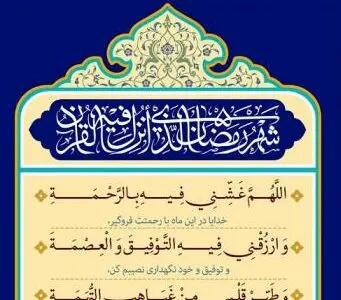 شهر رمضان الذي أنزل فيه القرآن
اللّهُمَّ غَشِّنِي فِيهِ بِالرَّحْمَةِ
خدایا در این ماه با رحمتت فروگیر،
وَ ارْزُقْنِي فِيهِ التَّوْفِيقَ وَ الْعِصْمَةَ
و توفیق و خود نگهداری نصیبم کن،
وَ طَهِّرْ قَلْبِي مِنْ غَيَاهِبِ التُّهَمَةِ